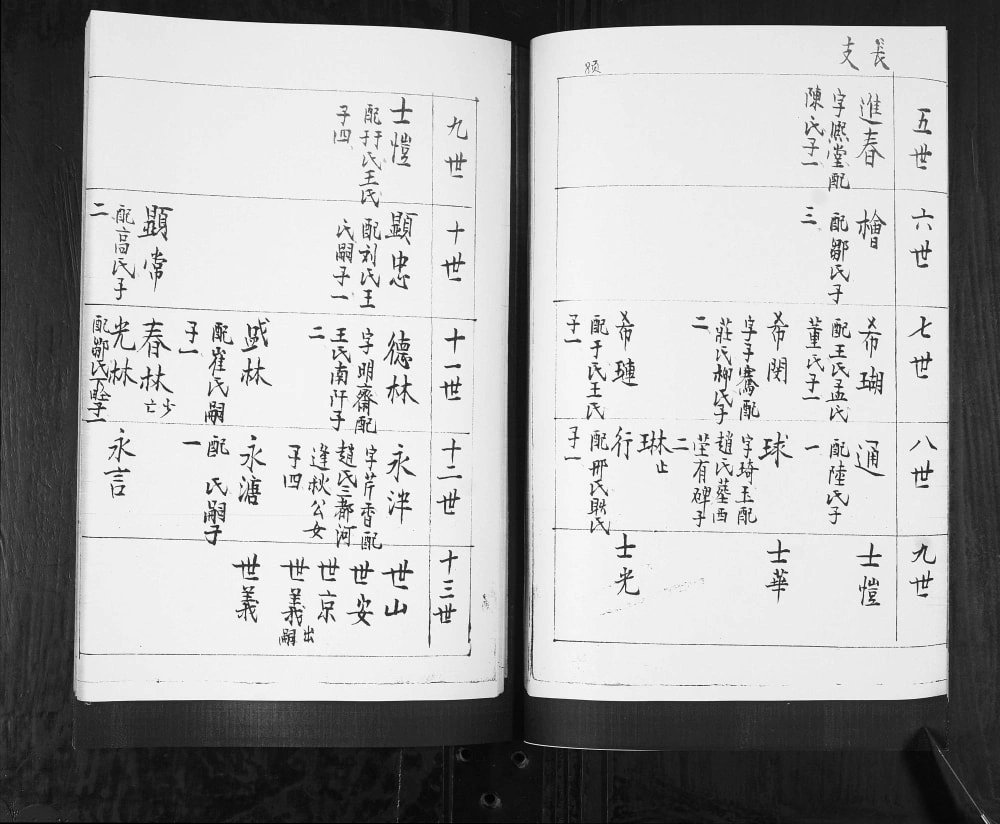 長支
五世
進春
字熙堂配
陳氏子一
六世
檜
配鄒氏子
三
七世
希瑚
配王氏孟氏
董氏子一
希閔
字子騫配
莊氏柳氏子
二
希璉
配于氏王氏
子一
八世
通
配陸氏子
一
球
字琦玉配
趙氏塟西
塋有碑子
二
琳止
行
配邢氏耿氏
子一
九世
士愷
士華
士光
九世
士愷
配于氏王氏
子四
十世
顯忠
配刘氏王
氏嗣子一
顯常
配高氏子
二
十一世
德林
字明齋配
王氏南阡子
二
盛林
配崔氏嗣
子一
春林少亡
光林
配鄒氏子一
十二世
永泮
字芹香配
趙氏三都河
逢秋公女
子四
永溏
配 氏嗣子
一
永言
十三世
世山
世安
世京
世義出嗣
世義